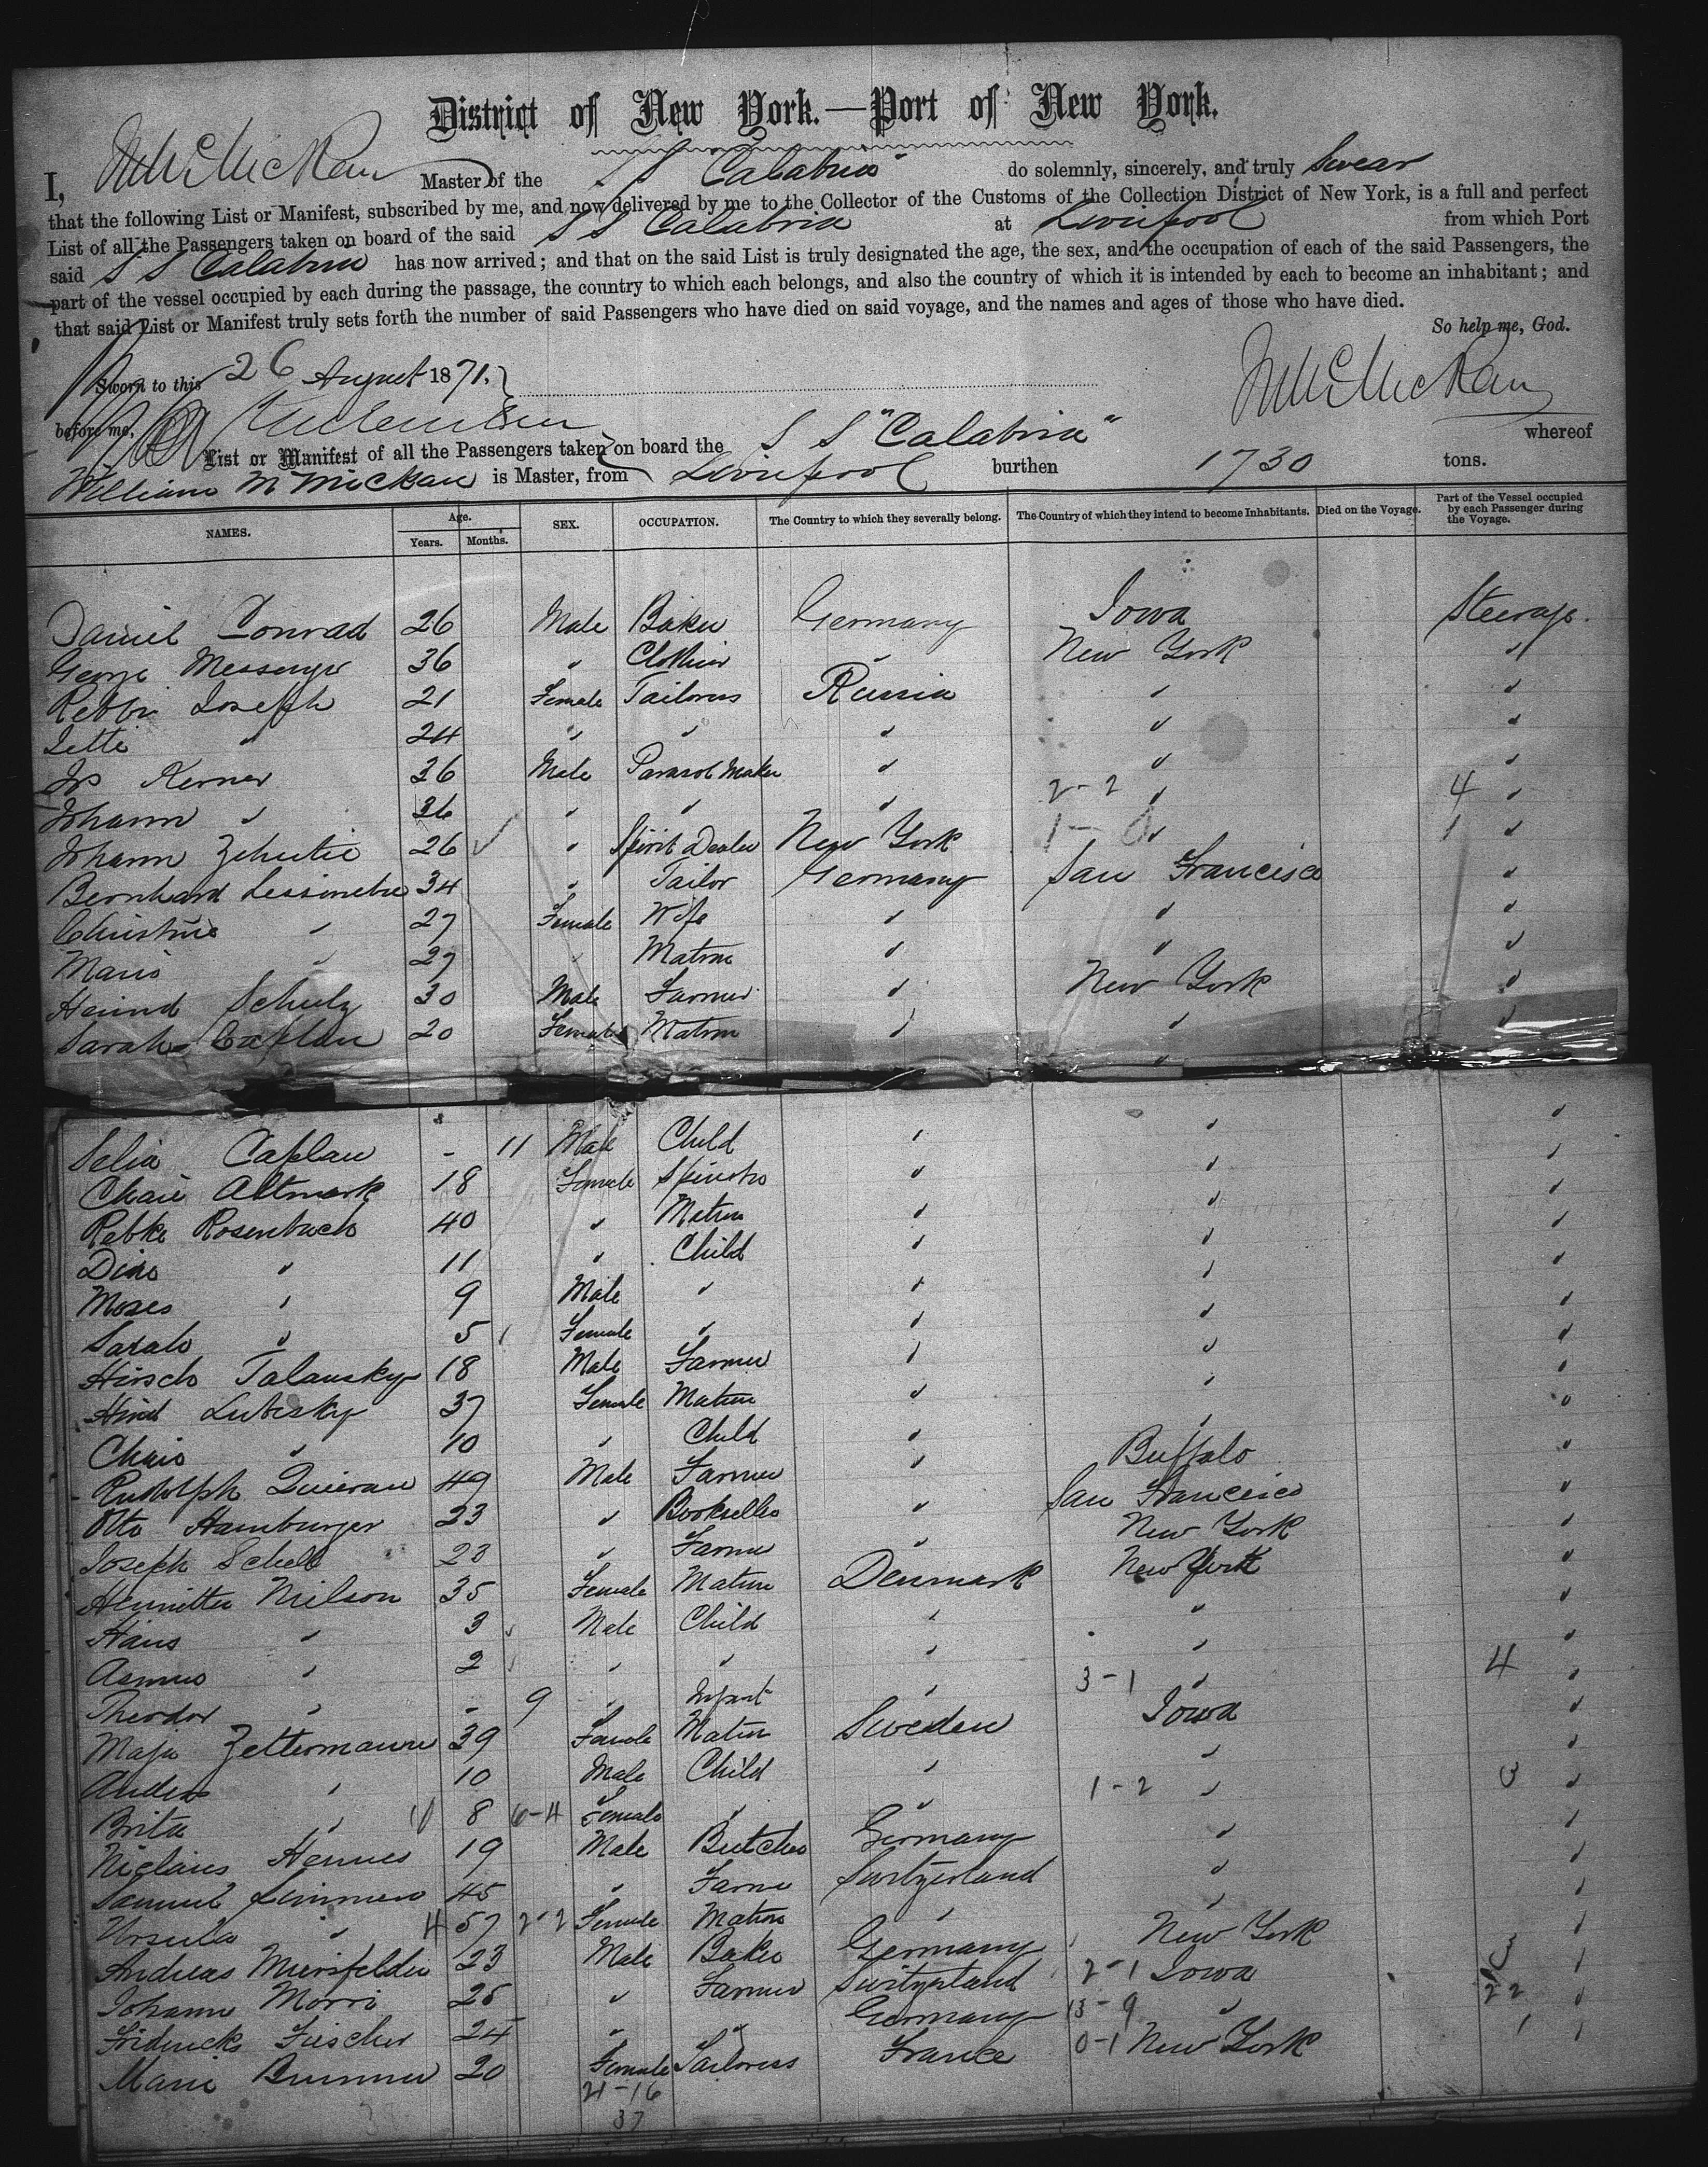 District of New York.—Port of New York.
I, Wm McMickan Master of the SS "Calabria" do solemnly, sincerely, and truly Swear
that the following List or Manifest, subscribed by me, and now delivered by me to the Collector of the Customs of the Collection District of New York, is a full and perfect
List of all the Passengers taken on board of the said SS Calabria at Liverpool from which Port
said SS Calabria has now arrived; and that on the said List is truly designated the age, the sex, and the occupation of each of the said Passengers, the
part of the vessel occupied by each during the passage, the country to which each belongs, and also the country of which it is intended by each to become an inhabitant; and
that said List or Manifest truly sets forth the number of said Passengers who have died on said voyage, and the names and ages of those who have died.
So help me, God.
Sworn to this 26 August 1871.
Wm McMickan
before me,
List or Manifest of all the Passengers taken on board the SS "Calabria" whereof
William McMickan is Master, from Liverpool burthen 1730 tons.
NAMES. Age. Years. Months. SEX. OCCUPATION. The Country to which they severally belong. The Country of which they intend to become Inhabitants. Died on the Voyage. Part of the Vessel occupied by each Passenger during the Voyage.
Daniel Conrad 26 Male Baker Germany Iowa Steerage.
George Messenger 36 " Clothier " New York "
Rebbi Joseph 21 Female Tailoress Russia " "
Jette " 24 " " " " "
Js Kerner 36 Male Parasol Maker " " "
Johann " 36 " " " 2-2 " 4 "
Johann 26 " Spirit Dealer New York 1- " 1 "
Bernhard 34 " Tailor Germany San Francisco "
Christine " 27 Female Wife " " "
Marie " 27 " Matron " " "
Heinrd Schulz 30 Male Farmer " New York "
Sarah Caplan 20 Female Matron " " "
Selia Caplan - 11 Male Child " " "
Chaie Altmark 18 Female Spinster " " "
Rebke Rosenbach 40 " Matron " " "
Dine " 11 " Child " " "
Moses " 9 Male " " " "
Sarah " 5 Female " " " "
Hirsch Talansky 18 Male Farmer " " "
Hind Lubesky 37 Female Matron " " "
Chaie " 10 " Child " " "
Rudolph 49 Male Farmer " Buffalo "
Otto Hamburger 23 " Bookseller " San Francisco "
Joseph Schell 23 " Farmer " New York "
Henrietta Nilson 35 Female Matron Denmark New York "
Hans " 3 Male Child " " "
Asmus " 2 " " " " "
Theodor " - 9 " Infant " 3-1 " 4 "
Maja Zettermann 39 Female Matron Sweden Iowa "
Anders " 10 Male Child " " "
Brita " 10 8 6-4 Female " " 1-2 " 3 "
Niclaus Hennes 19 Male Butcher Germany " "
Samuel Simmen 45 " Farmer Switzerland " "
Ursula " 4 57 2-2 Female Matron " " "
Andreas Meirsfelder 23 Male Baker Germany New York "
Johann Morri 25 " Farmer Switzerland 2-1 Iowa "
Fridericks Fischer 24 " " Germany 13-9 " 22 "
Marie Brunner 20 Female Tailoress France 0-1 New York 1 "
21-16
37